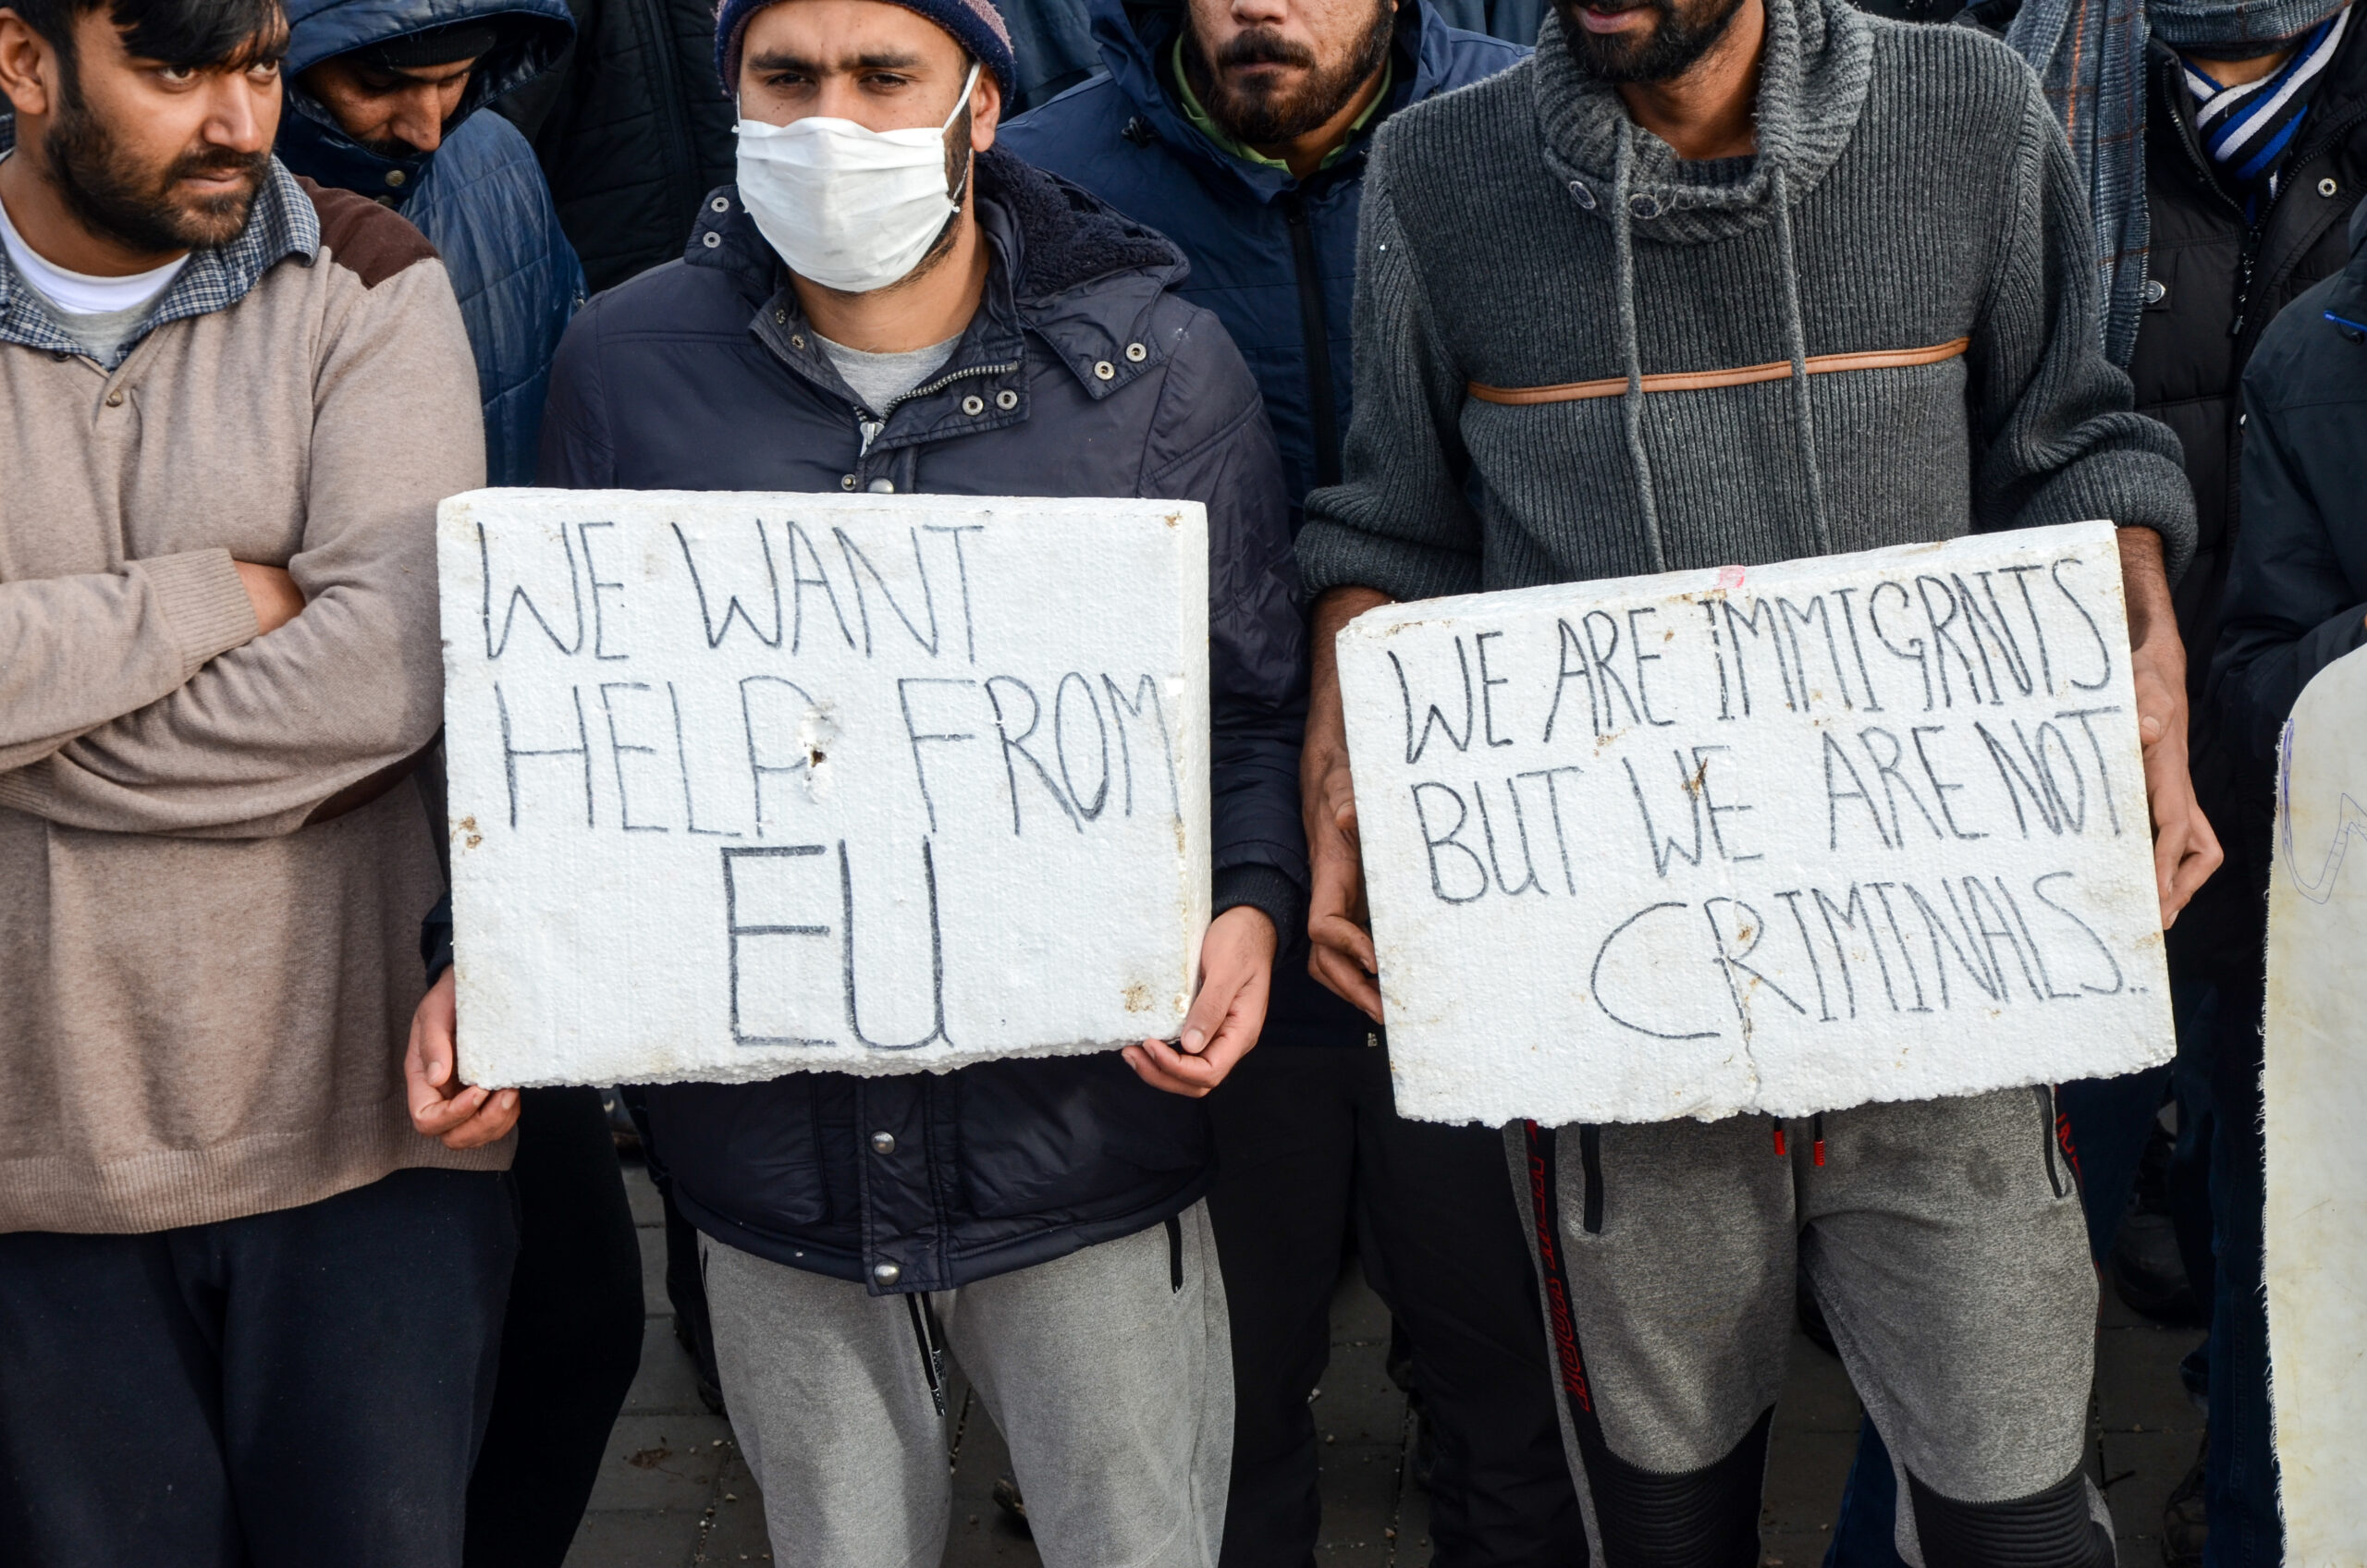 WE WANT
HELP FROM
EU
WE ARE IMMIGRNTS
BUT WE ARE NOT
CRIMINALS..